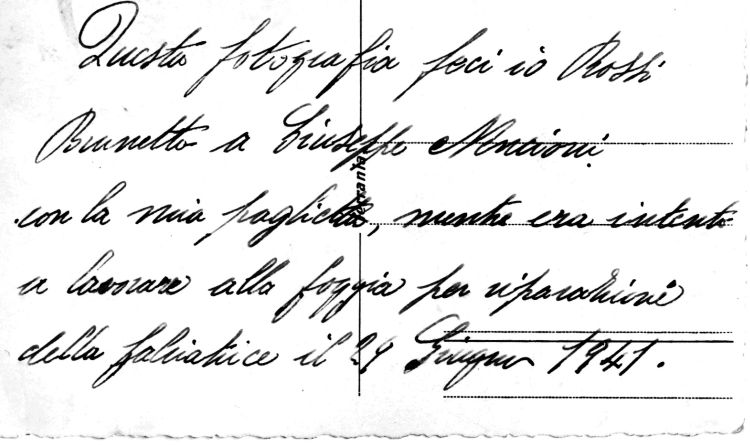 Questa fotografia feci io Rossi
Brunetto a Giuseppe Mencioni
con la mia paglietta, mentre era intento
a lavorare alla foggia per riparazione
della falciatrice il 29 Giugno 1941.
Ferrania